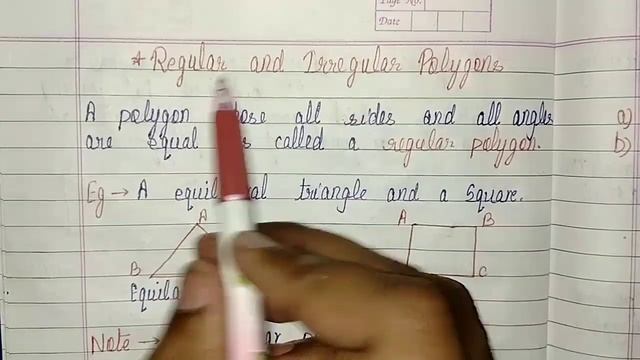 Page No.
Date
* Regular and Irregular Polygons
A polygon all sides and all angles a)
are equal called a regular polygon. b)
Eg → A triangle and a Square.
A A B
B C
Note →